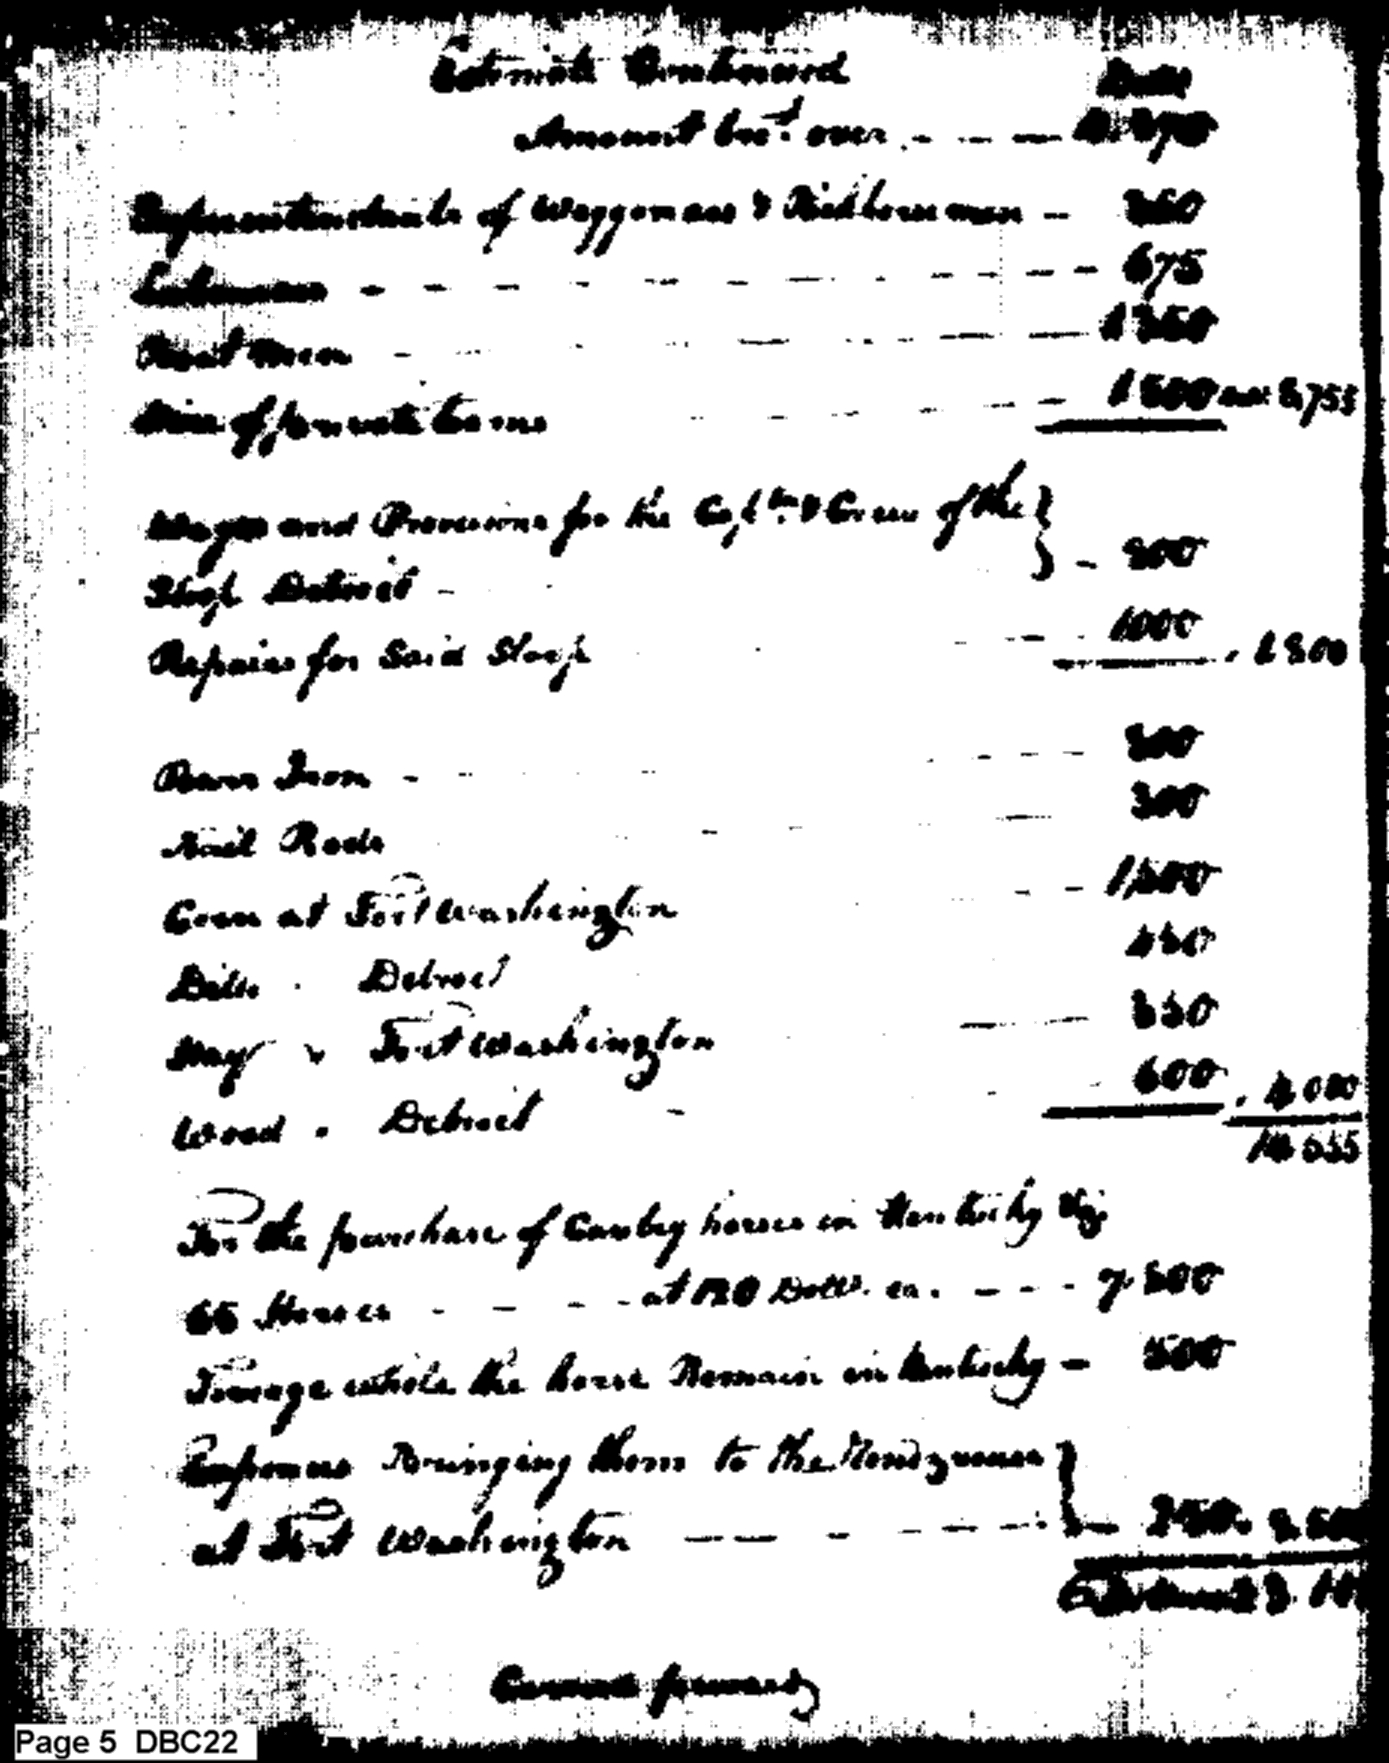 Estimate Continued Dolls
Amount bro.t over
Superintendants of Waggoners & Packhorsemen 360
675
Boat Men 1350
Hire of private teams 1500 8,755
Wages and Provisions for the Capt.n & Crew of the
Sloop Detroit 800
Repairs for Said Sloop 1000 1800
Barr Iron 800
Nail Rods 300
Corn at Fort Washington 1,500
Ditto Detroit 450
Hay " Fort Washington 350
Wood " Detroit 600 4000
14 555
For the purchase of Cavalry horses in Kentucky Viz.
65 Horses at 120 Dolls. ea. 7 800
Forrage while the horse Remain in Kentucky 500
Expences Bringing them to the Rendzvouse
at Fort Washington
Carried forward
Page 5 DBC22